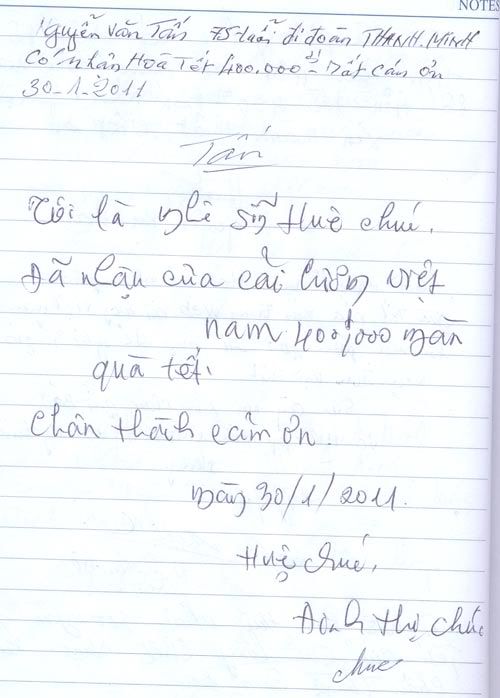 NOTES
Nguyễn Văn Tấn 75 tuổi đi đoàn THANH.MINH
Có nhận Hoà Tết 400.000đ = Rất cám ơn
30-1-2011
Tấn
Tôi là nghê sỹ Huê chúc.
Đã nhận của cải lương việt
nam 400,000 ngàn
quà tết.
Chân thành cảm ơn.
ngày 30/1/2011.
Huệ chúc,
thị chúc
chuc